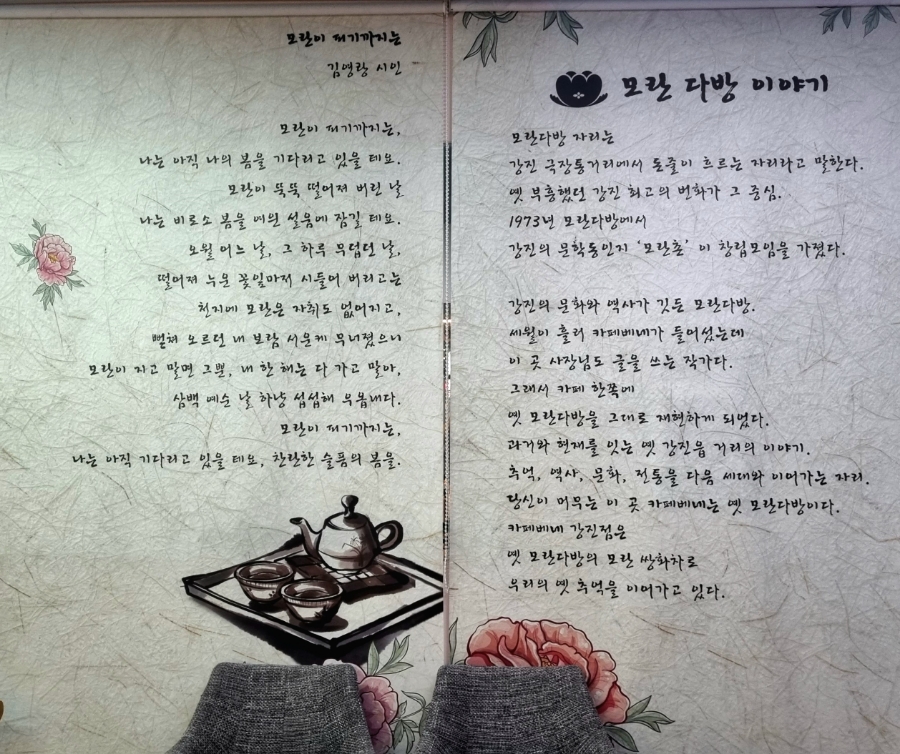 모란이 피기까지는
김영랑 시인
모란이 피기까지는,
나는 아직 나의 봄을 기다리고 있을 테요.
모란이 뚝뚝 떨어져 버린 날
나는 비로소 봄을 여읜 설움에 잠길 테요.
오월 어느 날, 그 하루 무덥던 날,
떨어져 누운 꽃잎마저 시들어 버리고는
천지에 모란은 자취도 없어지고,
뻗쳐 오르던 내 보람 서운케 무너졌으니
모란이 지고 말면 그뿐, 내 한 해는 다 가고 말아,
삼백 예순 날 하냥 섭섭해 우옵내다.
모란이 피기까지는,
나는 아직 기다리고 있을 테요, 찬란한 슬픔의 봄을.
모란 다방 이야기
모란다방 자리는
강진 극장통거리에서 돈줄이 흐르는 자리라고 말한다.
옛 부흥했던 강진 최고의 번화가 그 중심.
1973년 모란다방에서
강진의 문학동인지 '모란촌' 이 창립모임을 가졌다.
강진의 문화와 역사가 깃든 모란다방.
세월이 흘러 카페베네가 들어섰는데
이 곳 사장님도 글을 쓰는 작가다.
그래서 카페 한쪽에
옛 모란다방을 그대로 재현하게 되었다.
과거와 현재를 잇는 옛 강진읍 거리의 이야기.
추억, 역사, 문화, 전통을 다음 세대와 이어가는 자리.
당신이 머무는 이 곳 카페베네는 옛 모란다방이다.
카페베네 강진점은
옛 모란다방의 모란 쌍화차로
우리의 옛 추억을 이어가고 있다.